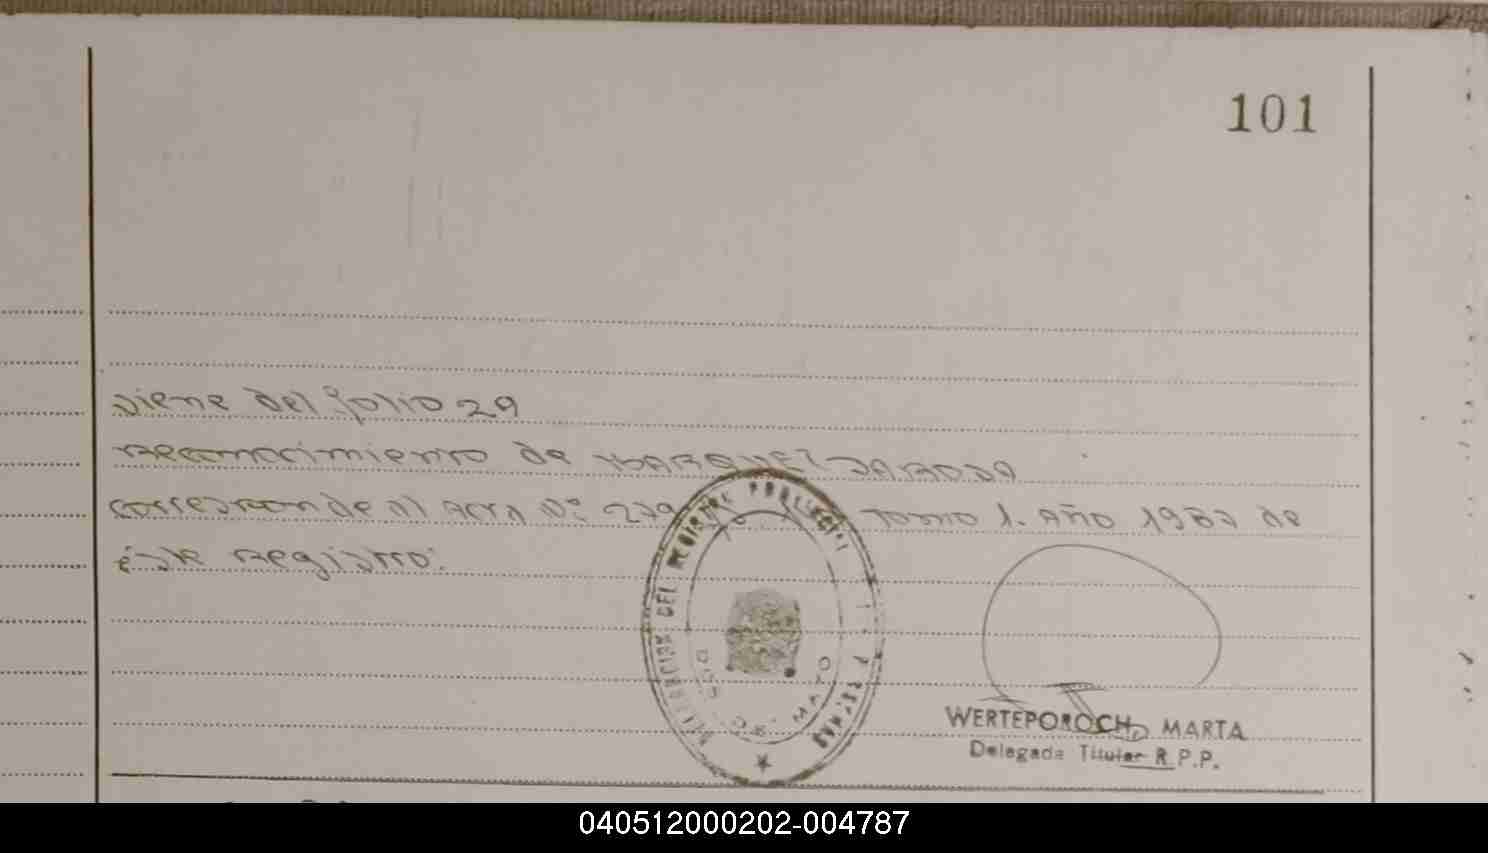 101
viene del folio 29
reconocimiento de
corresponde al ACTA Nº 279 Tomo 1. Año 1987 de
éste registro.
DELEGACION DEL REGISTRO PROVINCIAL
DE MAYO
WERTEPOROCH, MARTA
Delegada Titular R.P.P.
040512000202-004787